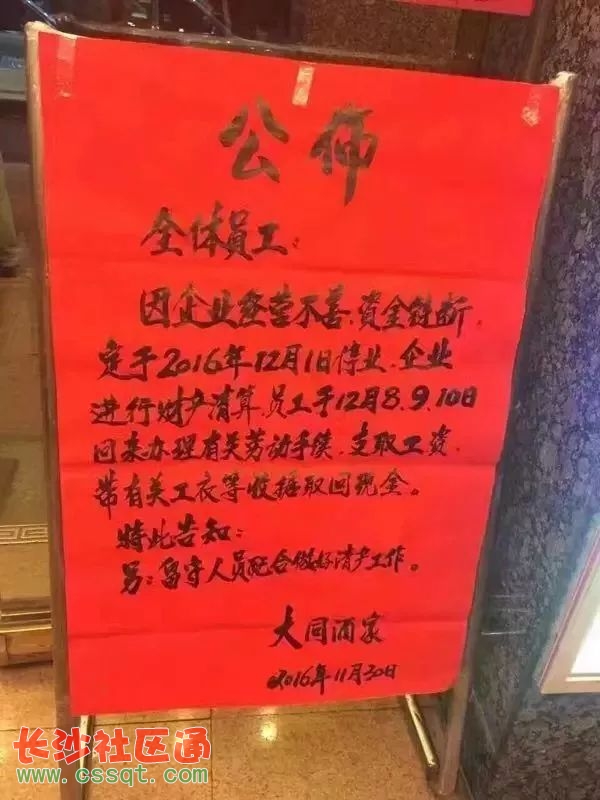 公佈
全体员工:
因企业经营不善、资金链断,
定于2016年12月1日停业、企业
进行财产清算,员工于12月8.9.10日
回来办理有关劳动手续、支取工资,
带有关工衣等收据取回现金。
特此告知:
另:留守人员配合做好清产工作。
大同酒家
2016年11月30日
长沙社区通
www.cssqt.com